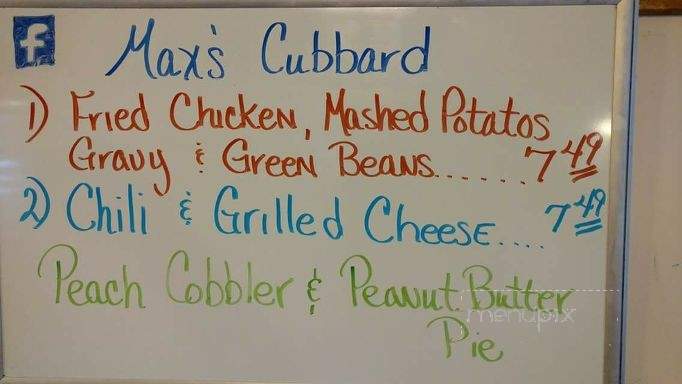 f
Max's Cubbard
1) Fried Chicken, Mashed Potatos
Gravy & Green Beans...... 7 49
2) Chili & Grilled Cheese.... 7 49
Peach Cobbler & Peanut Butter
Pie
menupix